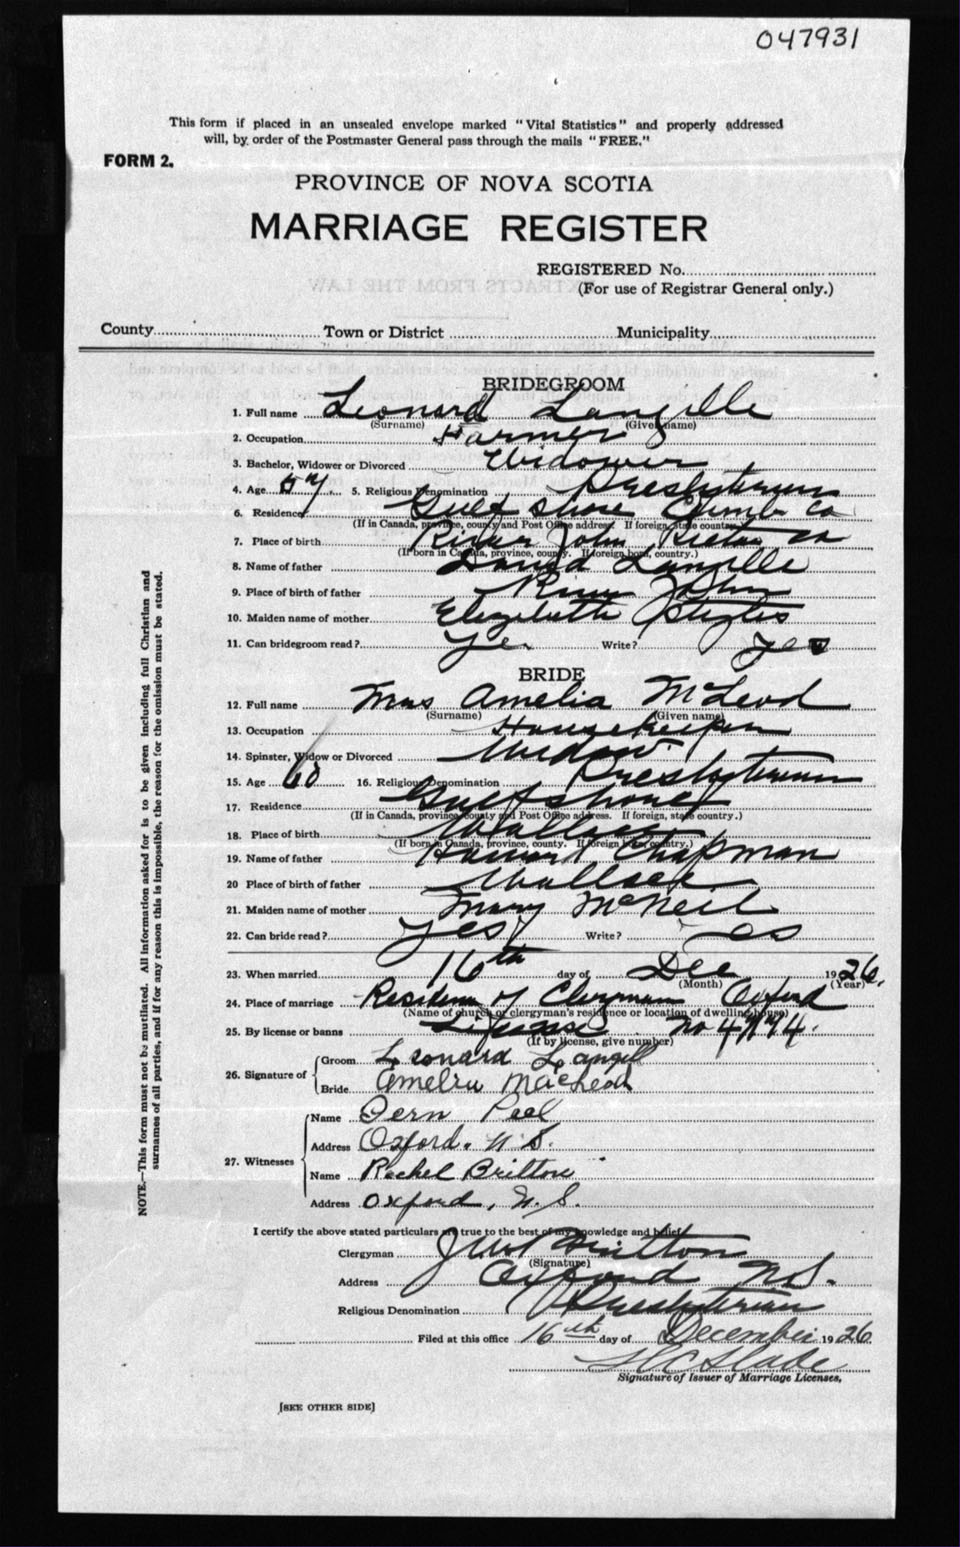 047931
This form if placed in an unsealed envelope marked "Vital Statistics" and properly addressed
will, by order of the Postmaster General pass through the mails "FREE."
FORM 2.
PROVINCE OF NOVA SCOTIA
MARRIAGE REGISTER
REGISTERED No.
(For use of Registrar General only.)
County Town or District Municipality
BRIDEGROOM
1. Full name Leonard Langille
(Surname) (Given name)
2. Occupation Farmer
3. Bachelor, Widower or Divorced Widower
4. Age 57 5. Religious Denomination Presbyterian
6. Residence Gulf Shore Cumb Co
(If in Canada, province, county and Post Office address. If foreign, state country.)
7. Place of birth River John Pictou Co
(If born in Canada, province, county. If foreign born, country.)
8. Name of father David Langille
9. Place of birth of father River John
10. Maiden name of mother Elizabeth
11. Can bridegroom read? Yes Write? Yes
BRIDE
12. Full name Mrs Amelia McLeod
(Surname) (Given name)
13. Occupation Housekeeper
14. Spinster, Widow or Divorced Widow
15. Age 60 16. Religious Denomination Presbyterian
17. Residence Gulf Shore
(If in Canada, province, county and Post Office address. If foreign, state country.)
18. Place of birth Wallace
(If born in Canada, province, county. If foreign born, country.)
19. Name of father Chapman
20 Place of birth of father Wallace
21. Maiden name of mother Mary McNeil
22. Can bride read? Yes Write? Yes
23. When married 16th day of Dec 1926.
(Month) (Year)
24. Place of marriage Residence of Clergyman Oxford
(Name of church or clergyman's residence or location of dwelling house)
25. By license or banns License No
(If by license, give number)
26. Signature of Groom Leonard Langill
Bride Amelia MacLeod
27. Witnesses Name Fern Peel
Address Oxford. N S.
Name Rachel Britton
Address Oxford, N.S.
I certify the above stated particulars are true to the best of my knowledge and belief
Clergyman Britton
(Signature)
Address Oxford N.S.
Religious Denomination Presbyterian
Filed at this office 16th day of December 1926
Signature of Issuer of Marriage Licenses.
[SEE OTHER SIDE]
NOTE.—This form must not be mutilated. All information asked for is to be given including full Christian and
surnames of all parties, and if for any reason this is impossible, the reason for the omission must be stated.